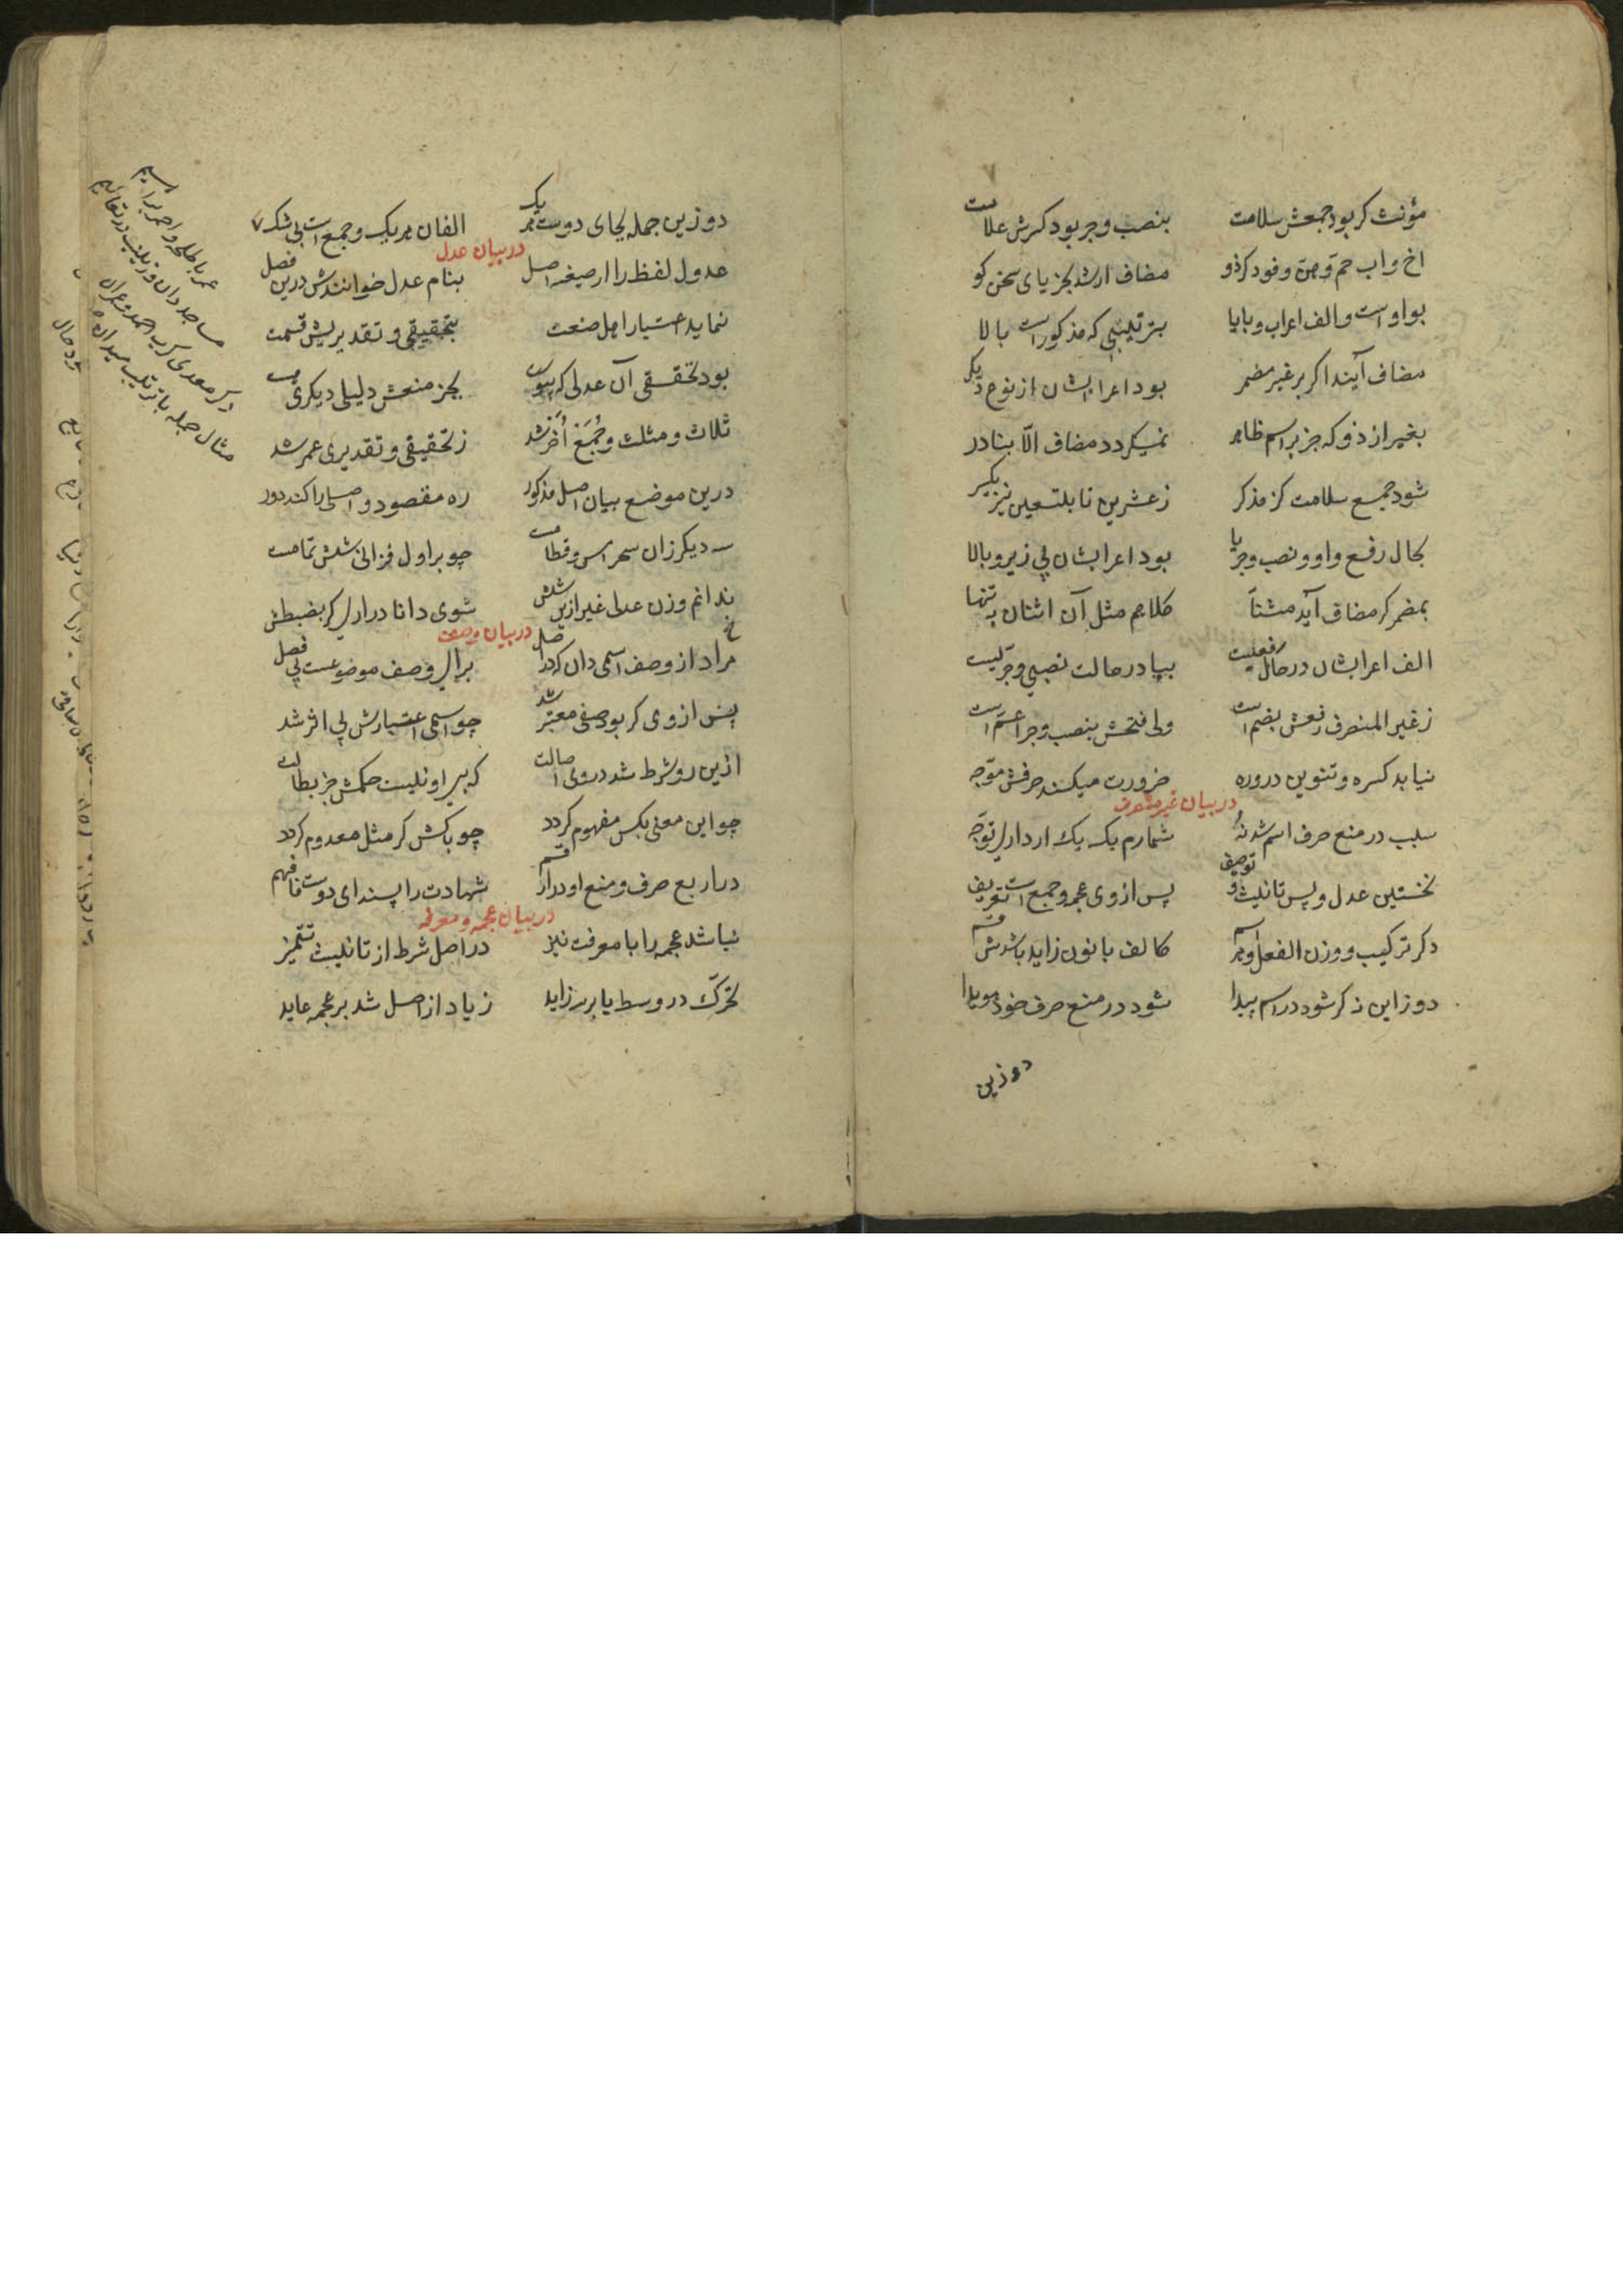 مؤنث کر بود جمعش سلامت بنصب و جر بود کسرش علامت
اخ و اب حم و هن و فوه کر ذو مضاف ار شد بجز یای سخن کو
بواو است و الف اعراب و با یا بترتیبی که مذکور است بالا
مضاف آیند اکر بر غیر مضمر بود اعرابشان از نوع دیکر
بغیر از ذو که جز بر اسم ظاهر نمیکردد مضاف الّا بنادر
شود جمع سلامت کز مذکر ز عشرین تا بتسعین نیز بکیر
بحال رفع واو و نصب و جر یا بود اعرابشان بی زیر و بالا
بمضمر کر مضاف آید مثنّا کلاهم مثل آن اثنان به تنها
الف اعرابشان در حال رفعیست بیا در حالت نصبی و جریست
ز غیر المنصرف رفعش بضم است ولی فتحش بنصب و جر اعم است
نیابد کسره و تنوین درو ره ضرورت میکند صرفش موجّه
در بیان غیر منصرف
سبب در منع صرف اسم شد نُه شمارم یک بیک ار داری توجّه
نخستین عدل و پس تانیث و توصیف پس از وی عجمه و جمع است تعریف
دکر ترکیب و وزن الفعل و هم اسم کالف با نون زاید باشدش قسم
دو زاین ذکر شود در اسم پیدا شود در منع صرف خود هویدا
دو زین
دو زین جمله بجای دوست هر یک الفان هر یک و جمع است بی شک
در بیان عدل
عدول لفظ را از صیغه اصل بنام عدل خوانندش درین فصل
نماید اعتبار اهل صنعت بتحقیقی و تقدیریش قسمت
بود تحقیقی آن عدلی که پیوست بجز منعش دلیلی دیکری هست
ثلاث و مثلث و جُمَع اُخَر شد ز تحقیقی و تقدیری عمر شد
درین موضع بیان اصل مذکور ره مقصود و اصلی را کند دور
سه دیکر زان سحر امس و قطامست چو بر اول فزائی شش تمامست
ندانم وزن عدلی غیر ازین شش شوی دانا درار کر بضبطش
در بیان وصف
مراد از وصف اسمی دان که در اصل برای وصف موضوعست بی فصل
پس از وی کر بوصفی معتبر شد چو اسمی اعتبارش بی اثر شد
ازین رو شرط شد در وی اصالت که بی او نیست حکمش جز بطالت
چو این معنی بکس مفهوم کردد چو باکش کر مثل معدوم کردد
در اربع صرف و منع او در ارقم شهادت را پسند ای دوست فافهم
در بیان عجمه و معرفه
نباشد عجمه را با معرفت نیز در اصل شرط از تانیث تمییز
تحرّک در وسط یا بر سه زاید زیاد از اصل شد بر عجمه عاید
عمر با طلحه و احمر ابراهیم
مساجد دان و زینب در تعالیم
دکر معدی کرب احمد و عمران
مثال جمله با ترتیب میدان